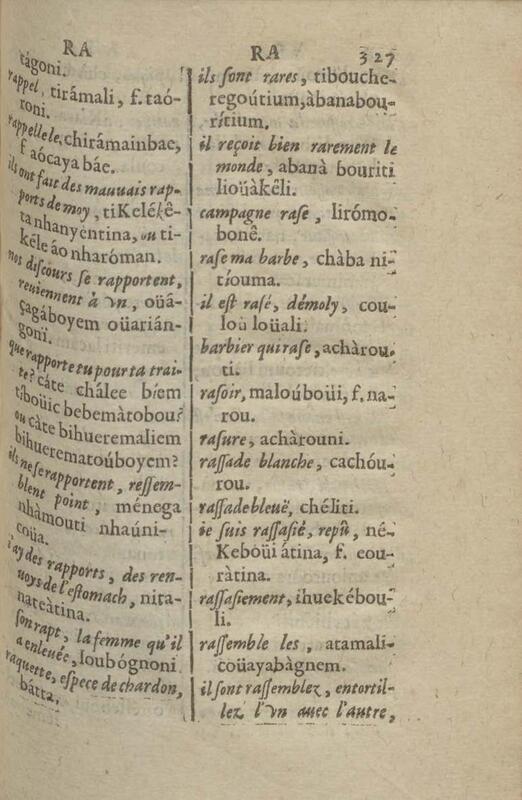 RA
tágoni.
rappel, tirámali, f. taó-
roni.
rappelle le, chirámainbae,
f aócaya báe.
ils ont fait des mauuais rap-
ports de moy, tiKelékê-
ta nhanyéntina, ou ti-
kéle áo nharóman.
nos discours se rapportent,
reuiennent à vn, oüá-
çagáboyem oüarián-
goni.
que rapporte tu pour ta trai-
te? cáte chálee biem
tiboüic bebemàtobou?
ou càte bihueremaliem
bihuerematoúboyem?
ils ne se rapportent, ressem-
blent point, ménega
nhàmouti nhaúni-
coüa.
i'ay des rapports, des ren-
uoys de l'estomach, nita-
nateàtina.
son rapt, la femme qu'il
a enleuée, loubógnoni
raquette, espece de chardon,
bátta.
RA 327
ils sont rares, tibouche-
regoútium, àbanabou-
rítium.
il reçoit bien rarement le
monde, abanà bouriti
lioüàkêli.
campagne rase, lirómo-
bonê.
rase ma barbe, chàba ni-
tíouma.
il est rasé, démoly, cou-
loù loüali.
barbier qui rase, achàrou-
ti.
rasoir, maloúboüi, f. na-
rou.
rasure, achàrouni.
rassade blanche, cachóu-
rou.
rassade bleuë, chéliti.
ie suis rassasié, repû, né-
Keboüi átina, f. eou-
ràtina.
rassasiement, ihuekébou-
li.
rassemble les, atamali-
coüayabàgnem.
il sont rassemblez, entortil-
lez l'vn auec l'autre,